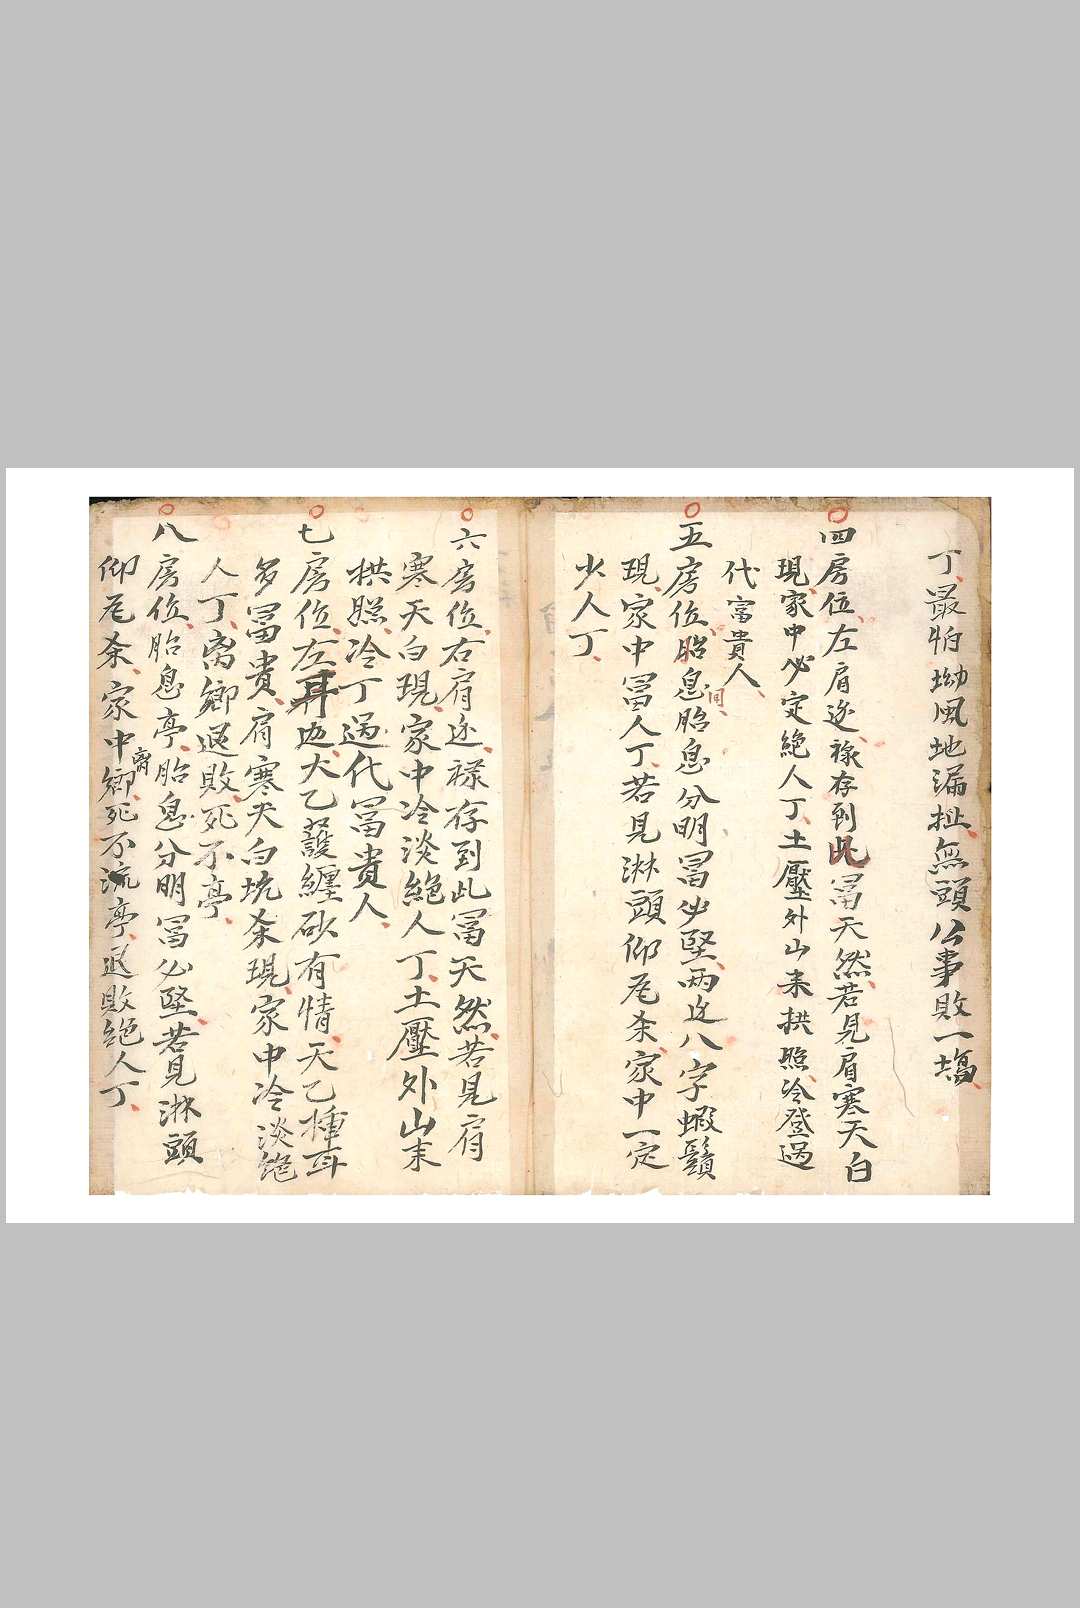 丁最怕坳風地漏扯無頭公事敗一塲
四房位左肩返祿存到此冨天然若見肩寒天白
現家中必定絶人丁土壓外山来拱照冷登過
代富貴人
五房位胎息胎息分明冨必堅兩边八字蝦鬚
同
現家中冨人丁若見淋頭仰尾杀家中一定
少人丁
六房位右肩返祿存到此冨天然若見肩
寒天白現家中冷淡絶人丁土壓外山来
拱照冷丁過代冨貴人
七房位左耳返犬乙護纏砂有情天乙種耳
多冨貴肩寒天白坑杀現家中冷淡絶
人丁离鄉退敗死不亭
八房位胎息亭胎息分明冨必堅若見淋頭
仰尾杀家中离鄉死不流亭退敗絶人丁